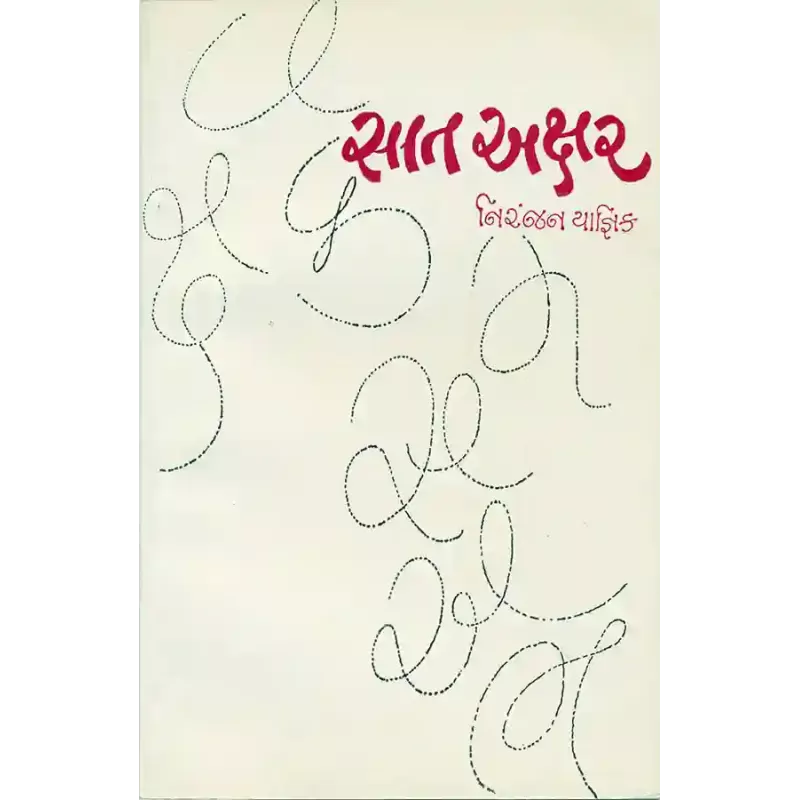 સાત અક્ષર
નિરંજન યાજ્ઞિક